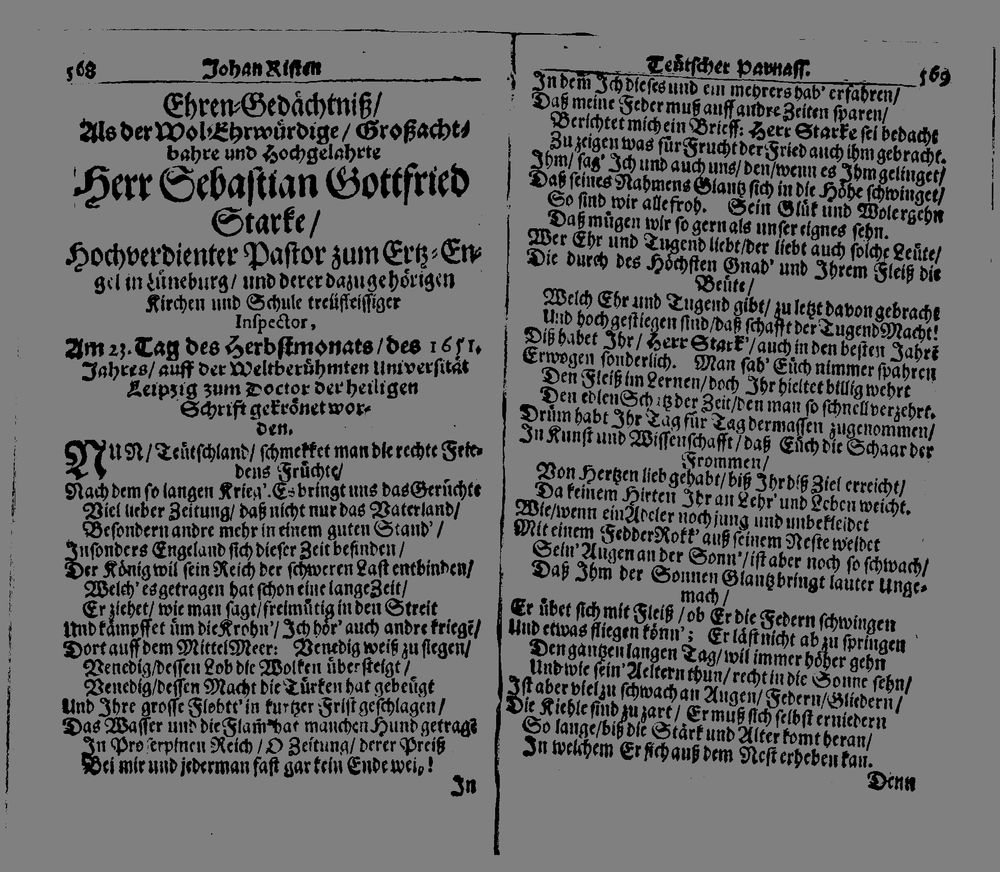 568 Johan Risten
Ehren-Gedächtniß/
Als der Wol-Ehrwürdige/ Großacht-
bahre und Hochgelahrte
Herr Sebastian Gottfried
Starke/
Hochverdienter Pastor zum Ertz-En-
gel in Lüneburg/ und derer dazugehörigen
Kirchen und Schule treüfleissiger
Inspector,
Am 23. Tag des Herbstmonats/ des 1651.
Jahres/ auff der Weltberühmten Universität
Leipzig zum Doctor der heiligen
Schrift gekrönet wor-
den.
NUN/ Teütschland/ schmekket man die rechte Frie-
dens Früchte/
Nach dem so langen Krieg'. Es bringt uns das Gerüchte
Viel lieber Zeitung/ daß nicht nur das Vaterland/
Besondern andre mehr in einem guten Stand'/
Insonders Engeland sich dieser Zeit befinden/
Der König wil sein Reich der schweren Last entbinden/
Welch' es getragen hat schon eine lange Zeit/
Er ziehet/ wie man sagt/ freimütig in den Streit
Und kämpffet üm die Krohn'/ Ich hör' auch andre kriege/
Dort auff dem MittelMeer: Venedig weiß zu siegen/
Venedig/ dessen Lob die Wolken übersteigt/
Venedig/ dessen Macht die Türken hat gebeügt
Und Ihre grosse Flohtt' in kurtzer Frist geschlagen/
Das Wasser und die Flam̃ hat manchen Hund getragẽ
In Proserpinen Reich/ O Zeitung/ derer Preiß
Bei mir und jederman fast gar kein Ende weiß!
In
Teütscher Parnass. 569
In dem̃ Ich dieses und ein mehrers hab' erfahren/
Daß meine Feder muß auff andre Zeiten sparen/
Berichtet mich ein Brieff: Herr Starke sei bedacht
Zu zeigen was für Frucht der Fried auch ihm gebracht.
Ihm/ sag' Ich und auch uns/ den/ wenn es Ihm gelinget/
Daß seines Nahmens Glantz sich in die Höhe schwinget/
So sind wir alle froh. Sein Glük und Wolergehn
Daß mügen wir so gern als unser eignes sehn.
Wer Ehr und Tugend liebt/ der liebt auch solche Leüte/
Die durch des Höchsten Gnad' und Ihrem Fleiß die
Beüte/
Welch Ehr und Tugend gibt/ zu letzt davon gebracht
Und hoch gestiegen sind/ daß schafft der Tugend Macht!
Diß habet Ihr/ Herr Stark'/ auch in den besten Jahrẽ
Erwogen sonderlich. Man sah' Eüch nimmer spahren
Den Fleiß im Lernen/ doch Ihr hieltet billig wehrt
Den edlen Schatz der Zeit/ den man so schnell verzehrt.
Drüm habt Ihr Tag für Tag dermassen zugenommen/
In Kunst und Wissenschafft/ daß Eüch die Schaar der
Frommen/
Von Hertzen lieb gehabt/ biß Ihr diß Ziel erreicht/
Da keinem Hirten Ihr an Lehr' und Leben weicht.
Wie/ wenn ein Adeler noch jung und unbekleidet
Mit einem FedderRokk' auß seinem Neste weidet
Sein' Augen an der Sonn'/ ist aber noch so schwach/
Daß Ihm der Sonnen Glantz bringt lauter Unge-
mach/
Er übet sich mit Fleiß/ ob Er die Federn schwingen
Und etwas fliegen könn'; Er läst nicht ab zu springen
Den gantzen langen Tag/ wil immer höher gehn
Und wie sein' Aeltern thun/ recht in die Sonne sehn/
Ist aber viel zu schwach an Augen/ Federn/ Gliedern/
Die Kiehle sind zu zart/ Er muß sich selbst erniedern
So lange/ biß die Stärk und Alter komt heran/
In welchem Er sich auß dem Nest erheben kan.
Denn